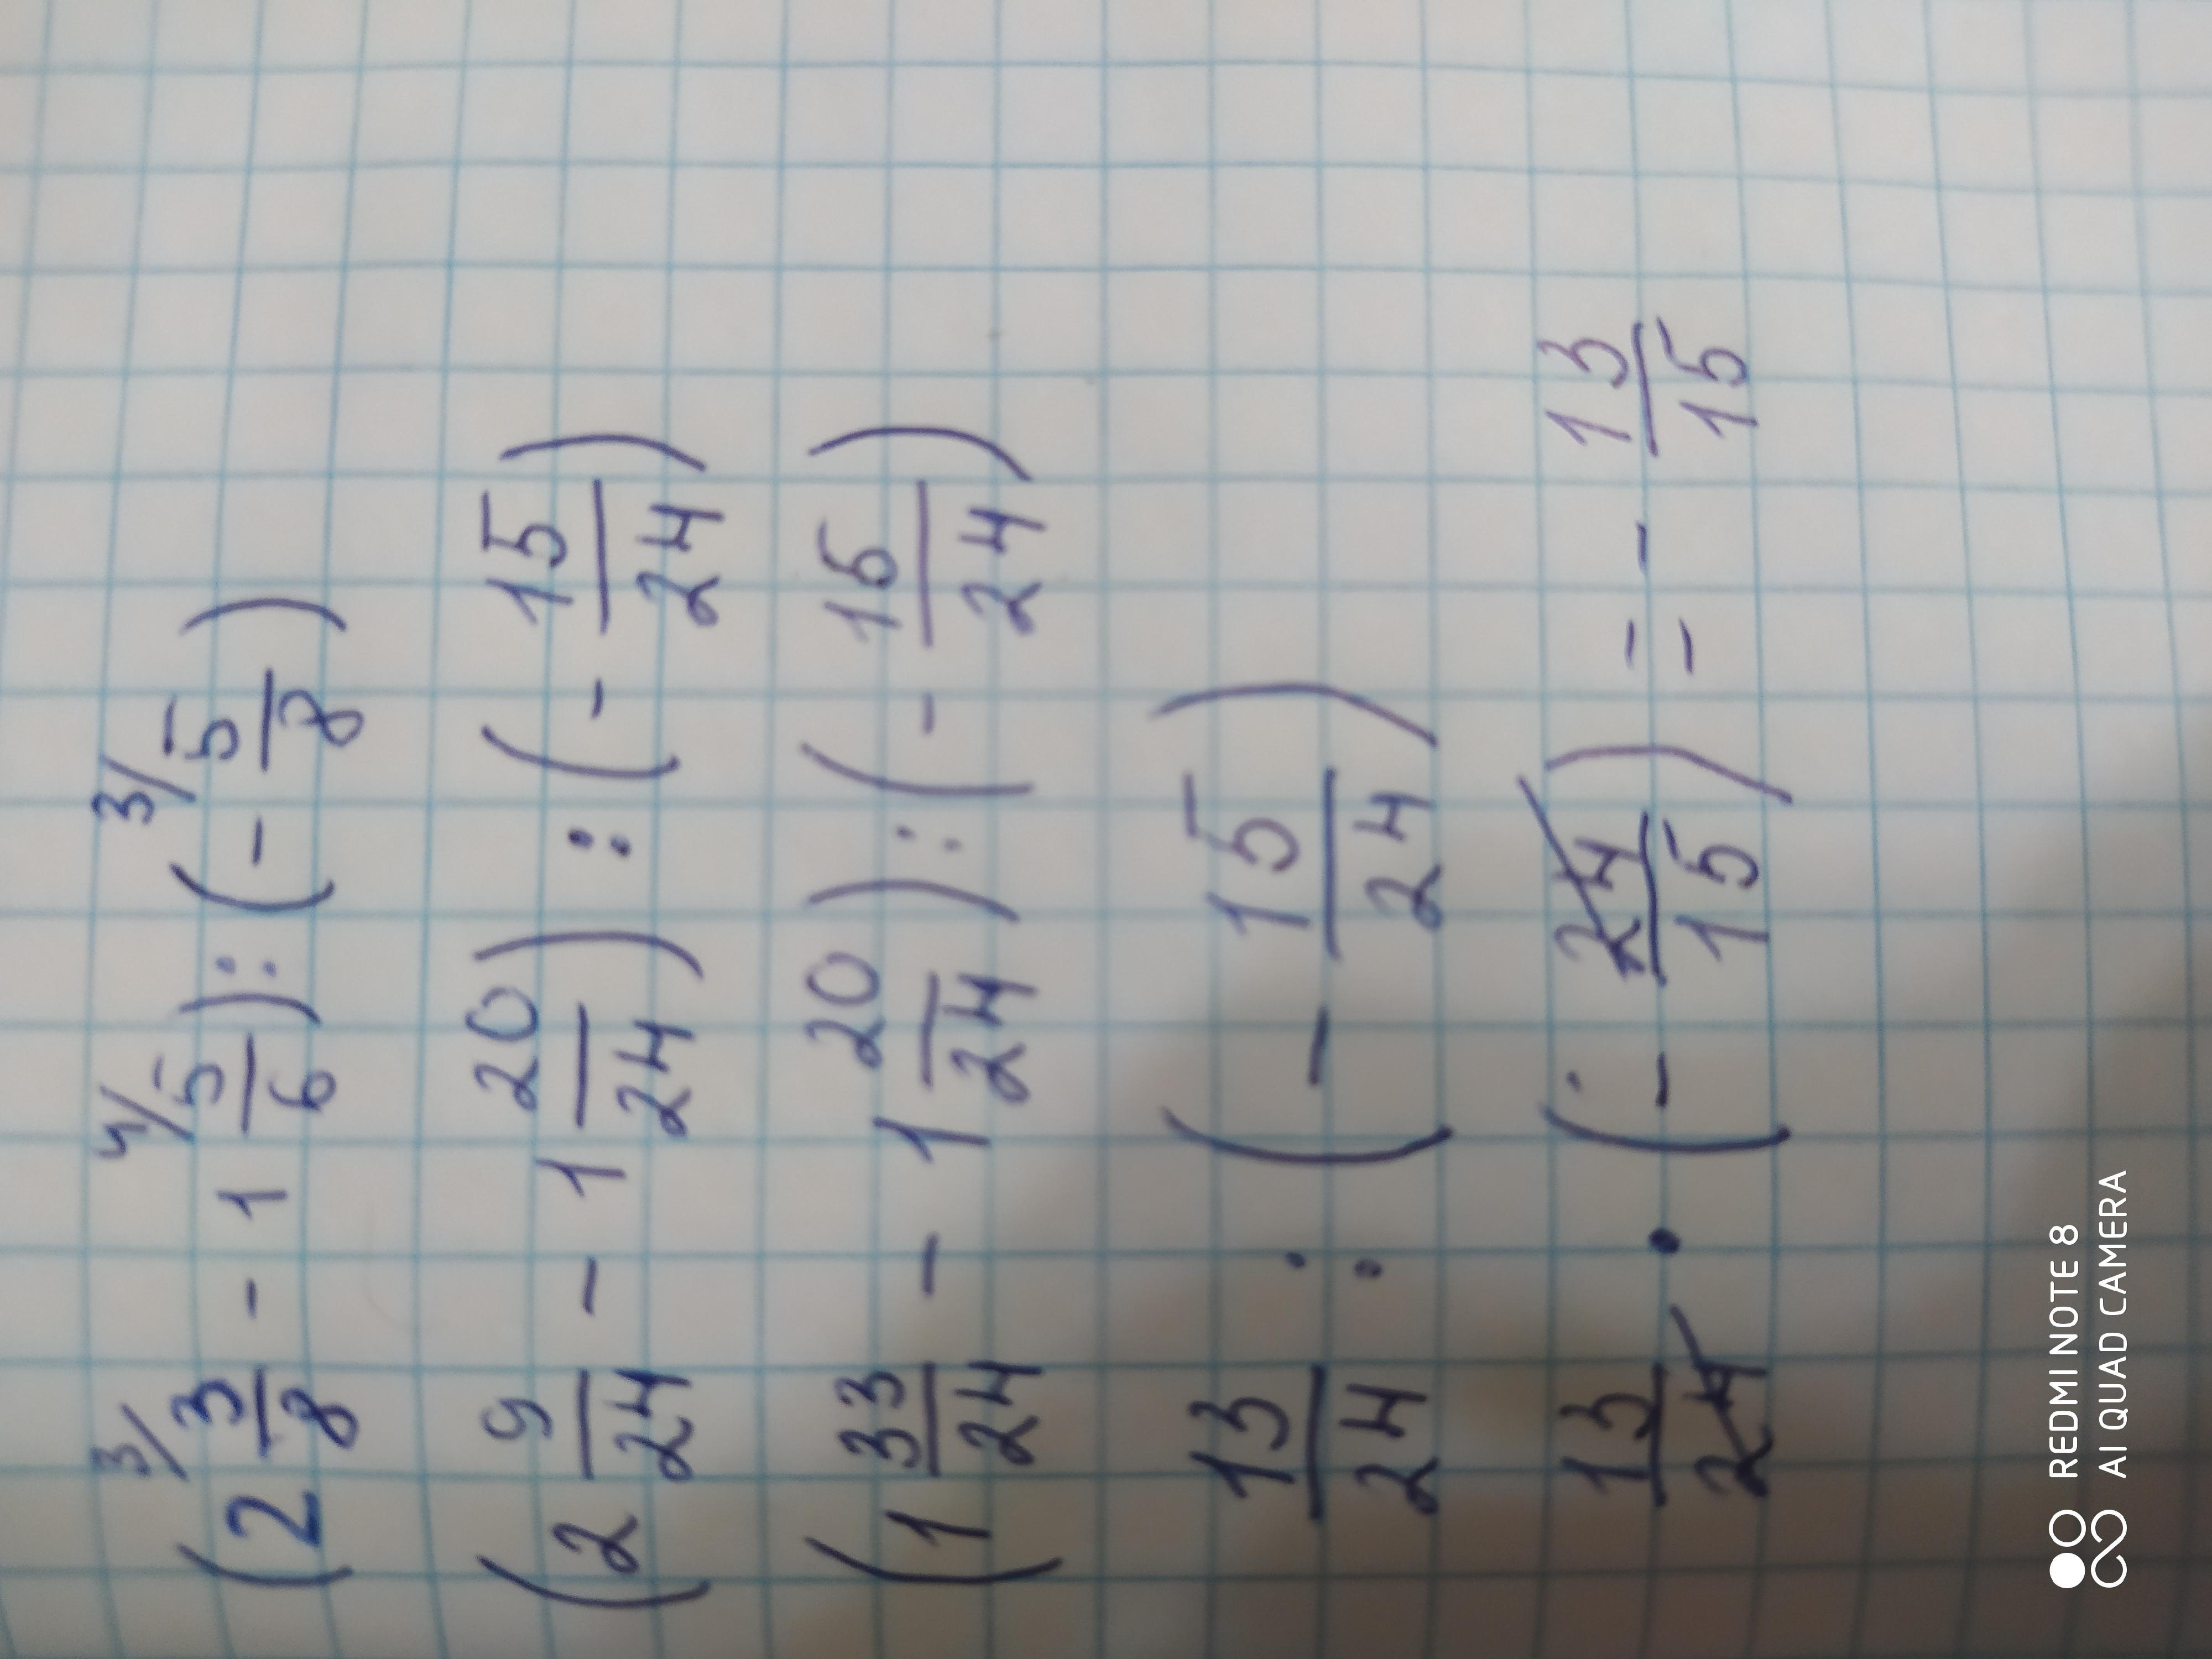 (2 3/ 3/8 - 1 4/ 5/6) : (- 3/ 5/8)
(2 9/24 - 1 20/24) : (- 15/24)
(1 33/24 - 1 20/24) : (- 15/24)
13/24 : (- 15/24)
13/24 · (- 24/15) = - 13/15
REDMI NOTE 8
AI QUAD CAMERA